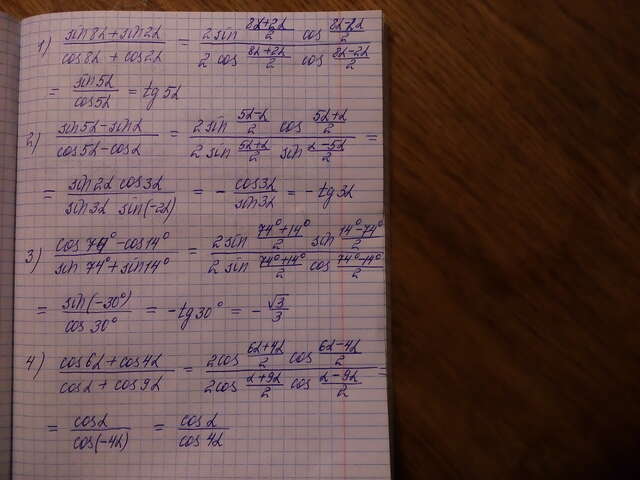 1) (sin8α + sin2α)/(cos8α + cos2α) = (2sin (8α+2α)/2 cos (8α-2α)/2)/(2 cos (8α+2α)/2 cos (8α-2α)/2)
= sin5α/cos5α = tg5α
2) (sin5α - sinα)/(cos5α - cosα) = (2sin (5α-α)/2 cos (5α+α)/2)/(2 sin (5α+α)/2 sin (α-5α)/2) =
= (sin2α cos3α)/(sin3α sin(-2α)) = - cos3α/sin3α = - tg3α
3) (cos 74° - cos14°)/(sin 74° + sin14°) = (2sin (74°+14°)/2 sin (14°-74°)/2)/(2 sin (74°+14°)/2 cos (74°-14°)/2)
= sin(-30°)/cos30° = -tg30° = - √3/3
4) (cos6α + cos4α)/(cosα + cos9α) = (2cos (6α+4α)/2 cos (6α-4α)/2)/(2cos (α+9α)/2 cos (α-9α)/2) =
= cosα/cos(-4α) = cosα/cos4α